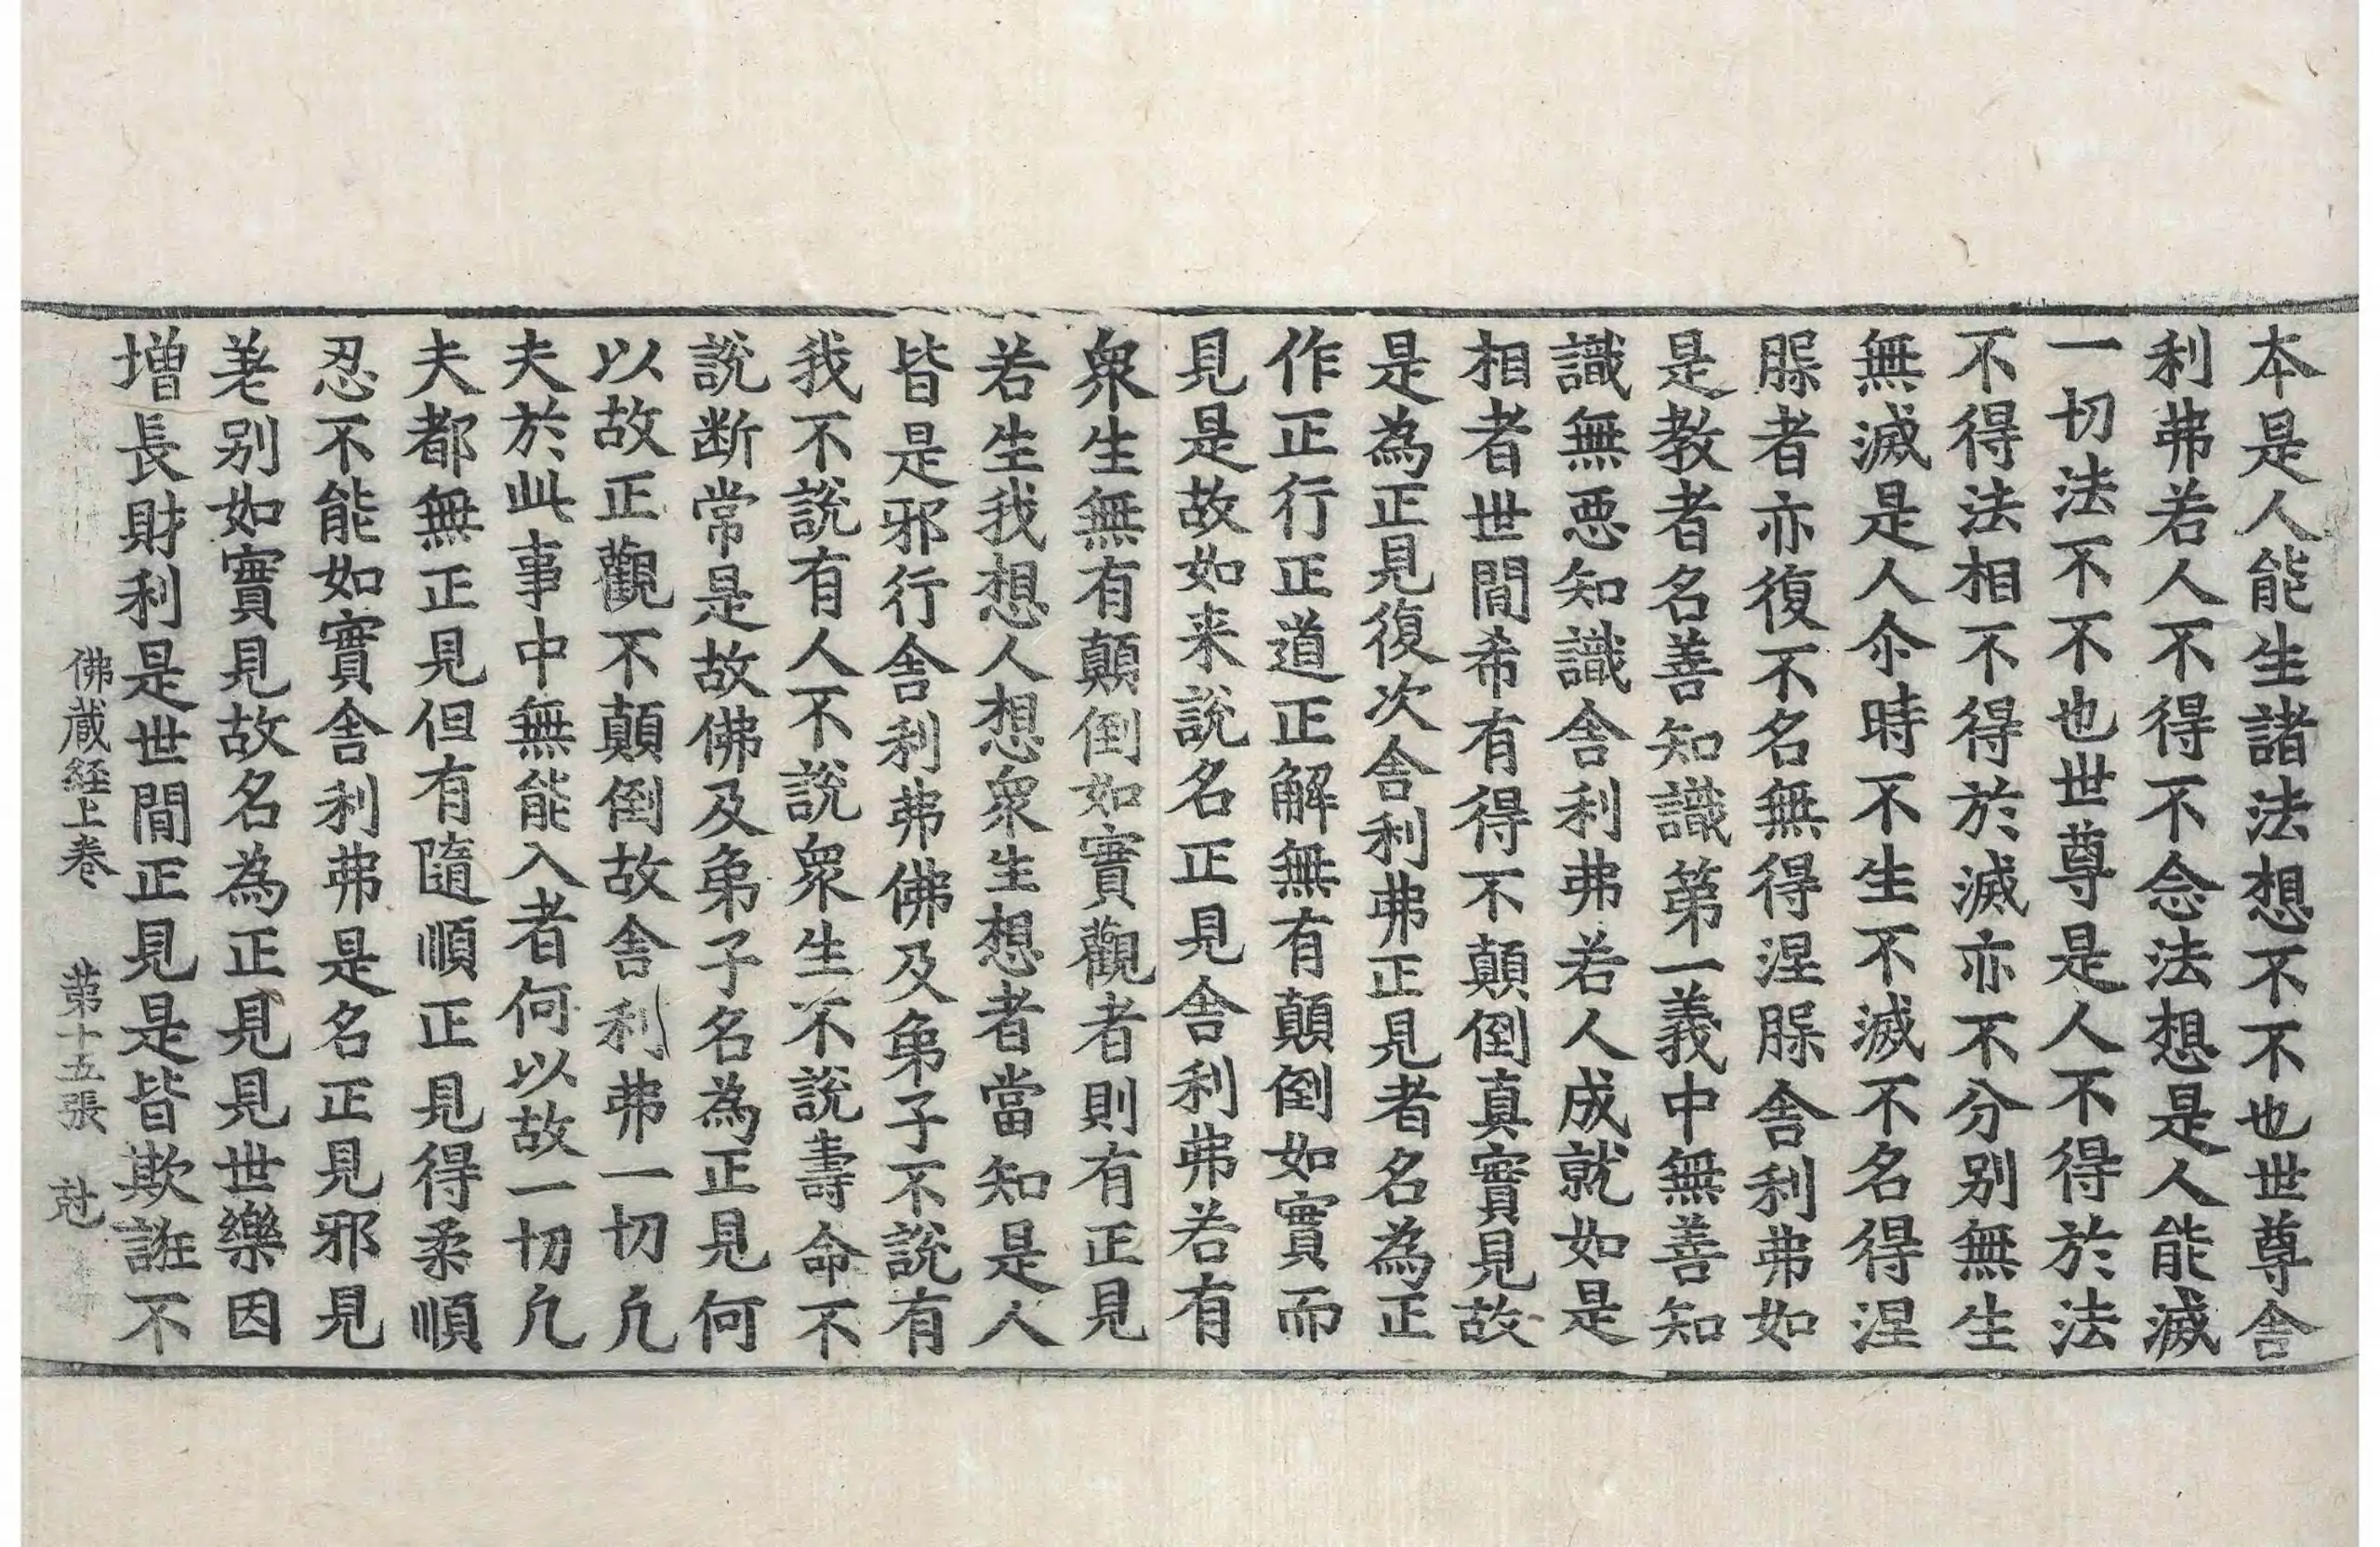 本是人能生諸法想不不也世尊舎
利弗若人不得不念法想是人能滅
一切法不不也世尊是人不得於法
不得法相不得於滅亦不分别無生
無滅是人尒時不生不滅不名得涅
𦝫者亦復不名無得涅𦝫舎利弗如
是教者名善知識第一義中無善知
識無惡知識舎利弗若人成就如是
相者世間希有得不顛倒真實見故
是為正見復次舎利弗正見者名為正
作正行正道正解無有顛倒如實而
見是故如来說名正見舎利弗若有
衆生無有顛倒如實觀者則有正見
若生我想人想衆生想者當知是人
皆是邪行舎利弗佛及弟子不說有
我不說有人不說衆生不說壽命不
說断常是故佛及弟子名為正見何
以故正觀不顛倒故舎利弗一切凢
夫於此事中無能入者何以故一切凢
夫都無正見但有隨順正見得柔順
忍不能如實舎利弗是名正見邪見
差别如實見故名為正見見世樂因
增長財利是世間正見是皆欺誑不
佛蔵経上巻　第十五張